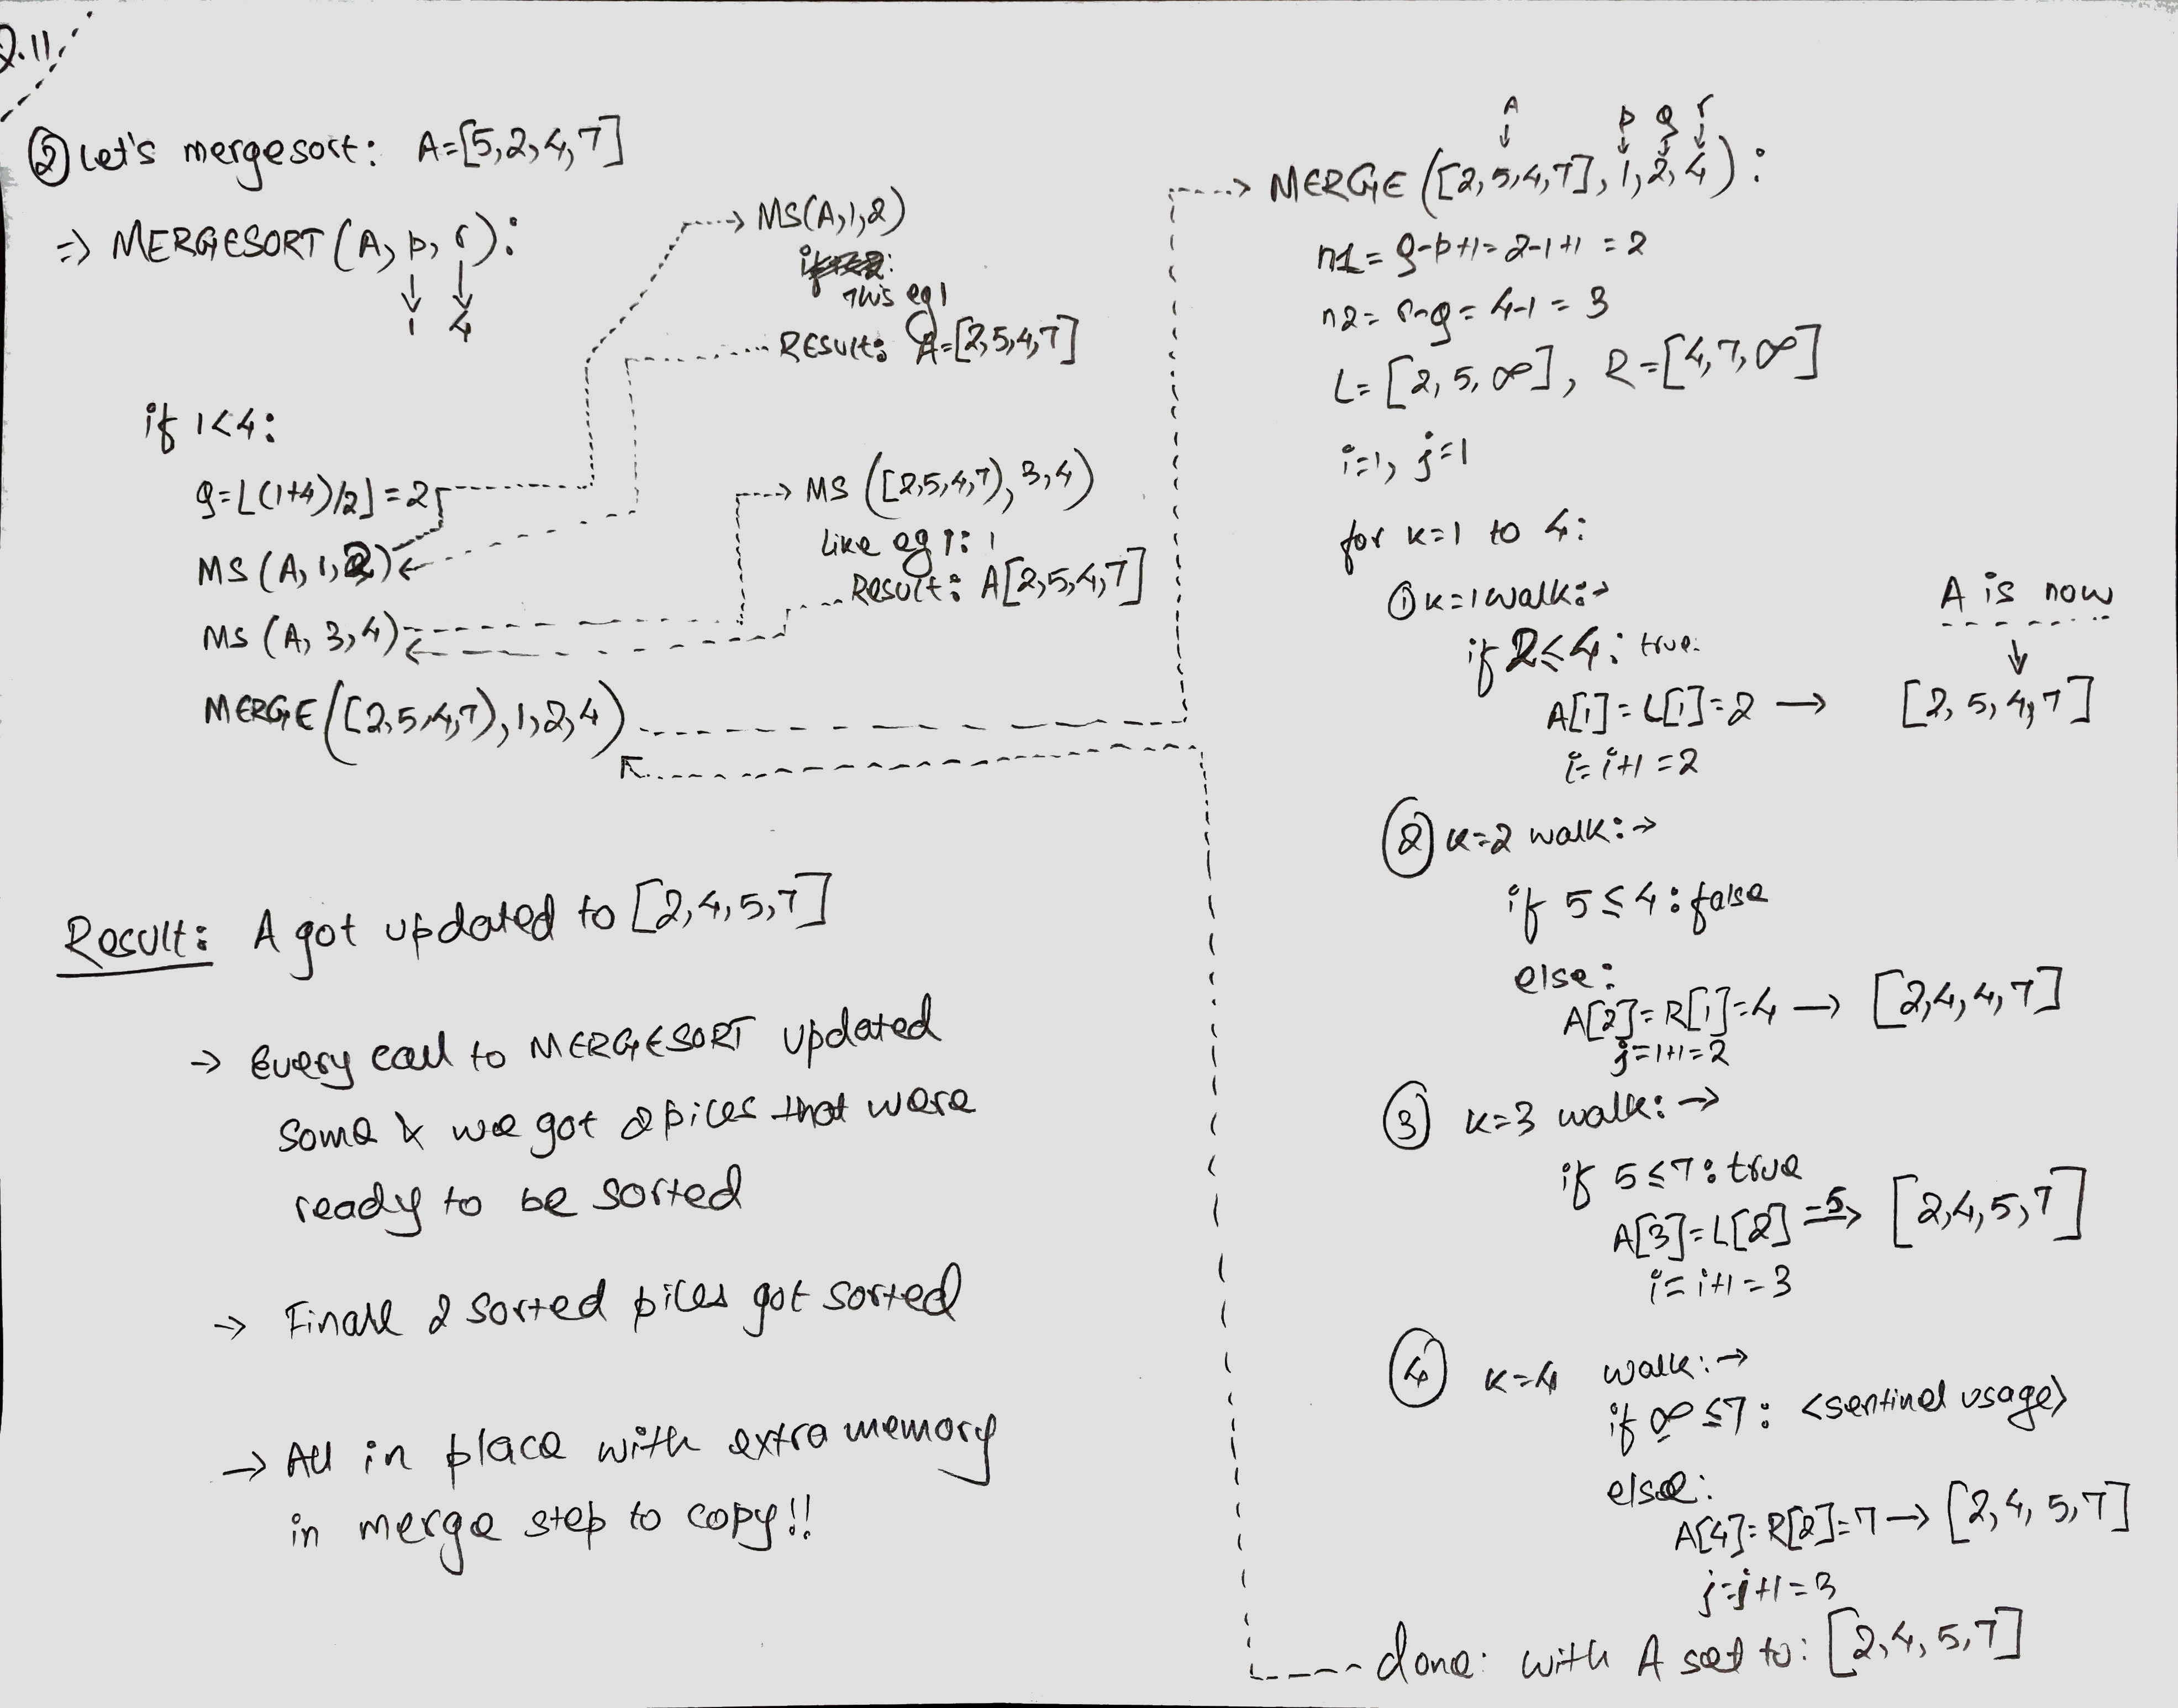 2.11
② Let's mergesort: A=[5,2,4,7]
=> MERGESORT (A, p, r):
↓ ↓
1 4
if 1<4:
q=⌊(1+4)/2⌋=2
MS (A, 1, 2)
MS (A, 3, 4)
MERGE ([2,5,4,7), 1, 2, 4)
MS(A,1,2)
This eg 1
RESULt: A=[2,5,4,7]
MS ([2,5,4,7), 3, 4)
Like eg 1:
Result: A[2,5,4,7]
Result: A got updated to [2,4,5,7]
→ Every call to MERGESORT updated
some & we got 2 pices that were
ready to be sorted
→ Finall 2 sorted pices got sorted
→ All in place with extra memory
in merge step to copy!!
A p q r
↓ ↓ ↓ ↓
MERGE ([2,5,4,7], 1, 2, 4):
n1 = q-p+1 = 2-1+1 = 2
n2 = r-q = 4-1 = 3
L = [2, 5, ∞], R = [4, 7, ∞]
i=1, j=1
for k=1 to 4:
① k=1 walk:→
A is now
↓
if 2≤4: true.
A[1] = L[1] = 2 → [2, 5, 4, 7]
i = i+1 = 2
② k=2 walk:→
if 5 ≤ 4: false
else:
A[2] = R[1] = 4 → [2,4,4,7]
j = 1+1 = 2
③ k=3 walk:→
if 5≤7: true
A[3] = L[2] =5→ [2,4,5,7]
i = i+1 = 3
④ k=4 walk:→
if ∞ ≤7: <sentinel usage>
else:
A[4] = R[2] = 7 → [2, 4, 5, 7]
j=j+1 = 3
done: with A set to: [2,4,5,7]